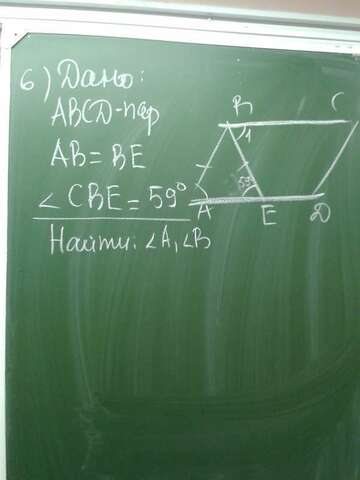 6) Дано:
ABCD-пар
AB = BE
∠ CBE = 59°
Найти: ∠A, ∠B
B C
1
59°
A E D